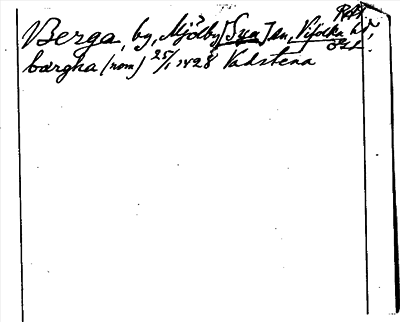 Berga, by, Mjölby [Sya] sn, Vifolka hd,
Ögl.
bærgha (nom) 25/1 1428 Vadstena